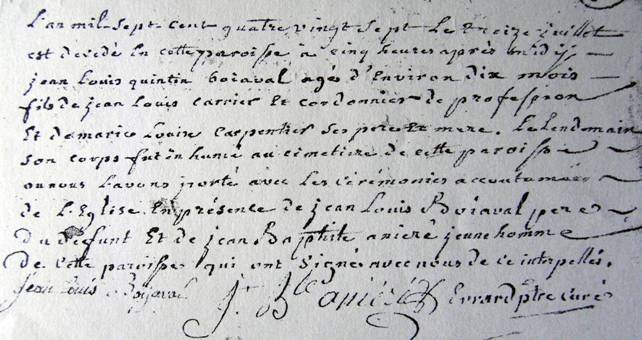 L'an mil-sept-cent quatre vingt sept Le treize juillet
est decedé En cette paroisse à cinq heures après midij
jean Louis quintin boiaval agés d'Environ dix mois
fils de jean Louis carrier Et cordonnier de profession
Et de marie Louise Carpentier Ses pere Et mere. Le Lendemain
Son corps fut inhumé au cimetiere de cette paroisse
ou nous L'avons porté avec Les Cérémonies accoutumées
de L'Eglise. En présence de jean Louis Boiaval pere
du defunt Et de jean Baptiste aniere jeune homme
de Cette paroisse qui ont Signé avec nous de ce interpellés.
jean Louis Boiaval J. Bte Errard ptre curé